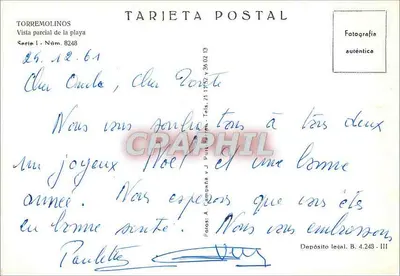 TARJETA POSTAL
TORREMOLINOS
Vista parcial de la playa
Serie I - Núm. 8248
Fotografía
auténtica
24.12.61
Cher Oncle, cher Tante
Nous vous souhaitons à tous deux
un joyeux Noël et une bonne
année. Nous espérons que vous êtes
en bonne santé. Nous vous embrassons
Paulette
CRAPHIL
Fotos: A. Campañá y J. Puig
Depósito legal. B. 4.248 - III